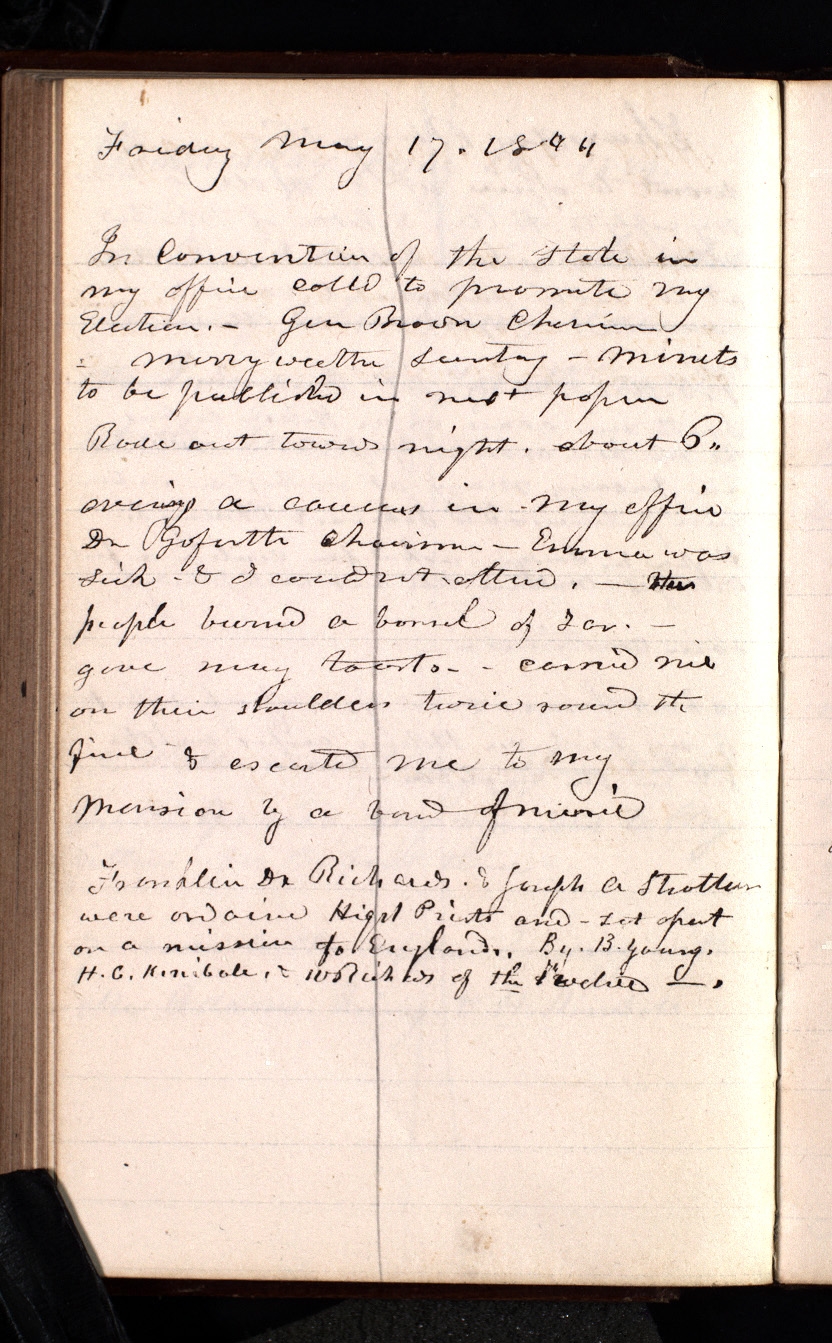 Friday May 17. 1844
In Convention of the State in
my office call^d to promote my
Election. - Gen Brown Chairman
- merryweather Secretary - minets
to be published in next paper
Rode out towards night. about 6.
eveing a caucus in my office
Dr Goforth chairman - Emma was
sick - & I could not attend. - the
people burned a barrel of Tar. -
gave many toasts - - carried me
on their shoulders twice round the
fire & escorted me to my
Mansion by a band of music
Franklin D. Richards. & Joseph A Stratton
were ordained High Priests and - set apart
on a mission to England. By. B. Young.
H. C. Kimball. & W Richards of the Twelve -.